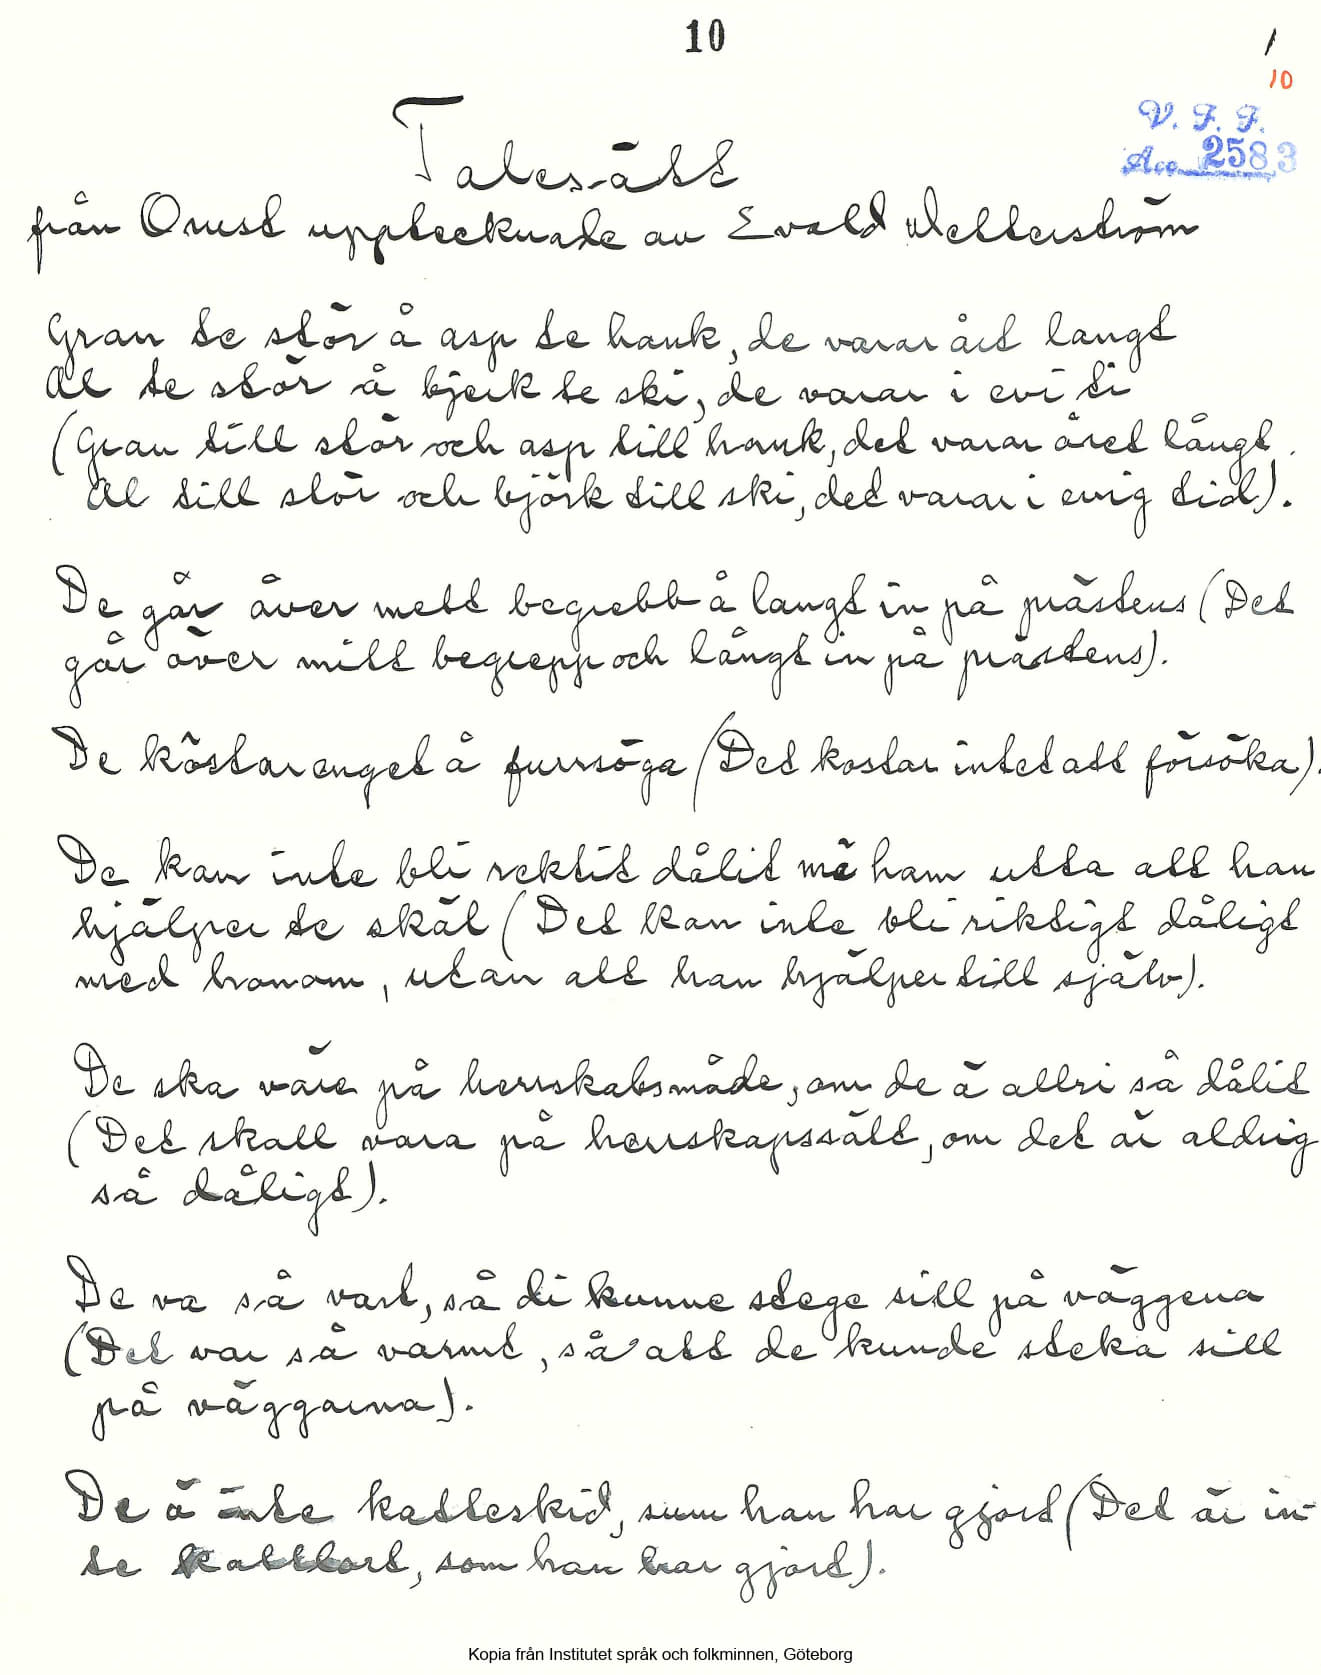 10
1
10
V. F. F.
Acc. 2583
Talesätt
från Orust upptecknade av Evald Wetterström
Gran te stör å asp te hank, de varar året langt
Al te stör å bjerk te ski, de varar i evi ti
(Gran till stör och asp till hank, det varar året långt.
Al till stör och björk till ski, det varar i evig tid).
De går åver mett begrebb å langt in på prästens (Det
går över mitt begrepp och långt in på prästens).
De köstar enget å fursöga (Det kostar intet att försöka).
De kan inte bli rektit dålit mä ham utta att han
hjälper te skäl (Det kan inte bli riktigt dåligt
med honom, utan att han hjälper till själv).
De ska väre på herrskabsmåde, om de ä allri så dålit
(Det skall vara på herrskapssätt, om det är aldrig
så dåligt).
De va så vart, så di kunne stege sill på väggena
(Det var så varmt, så att de kunde steka sill
på väggarna).
De ä inte katteskid, sum han har gjort (Det är in-
te kattlort, som han har gjort).
Kopia från Institutet språk och folkminnen, Göteborg